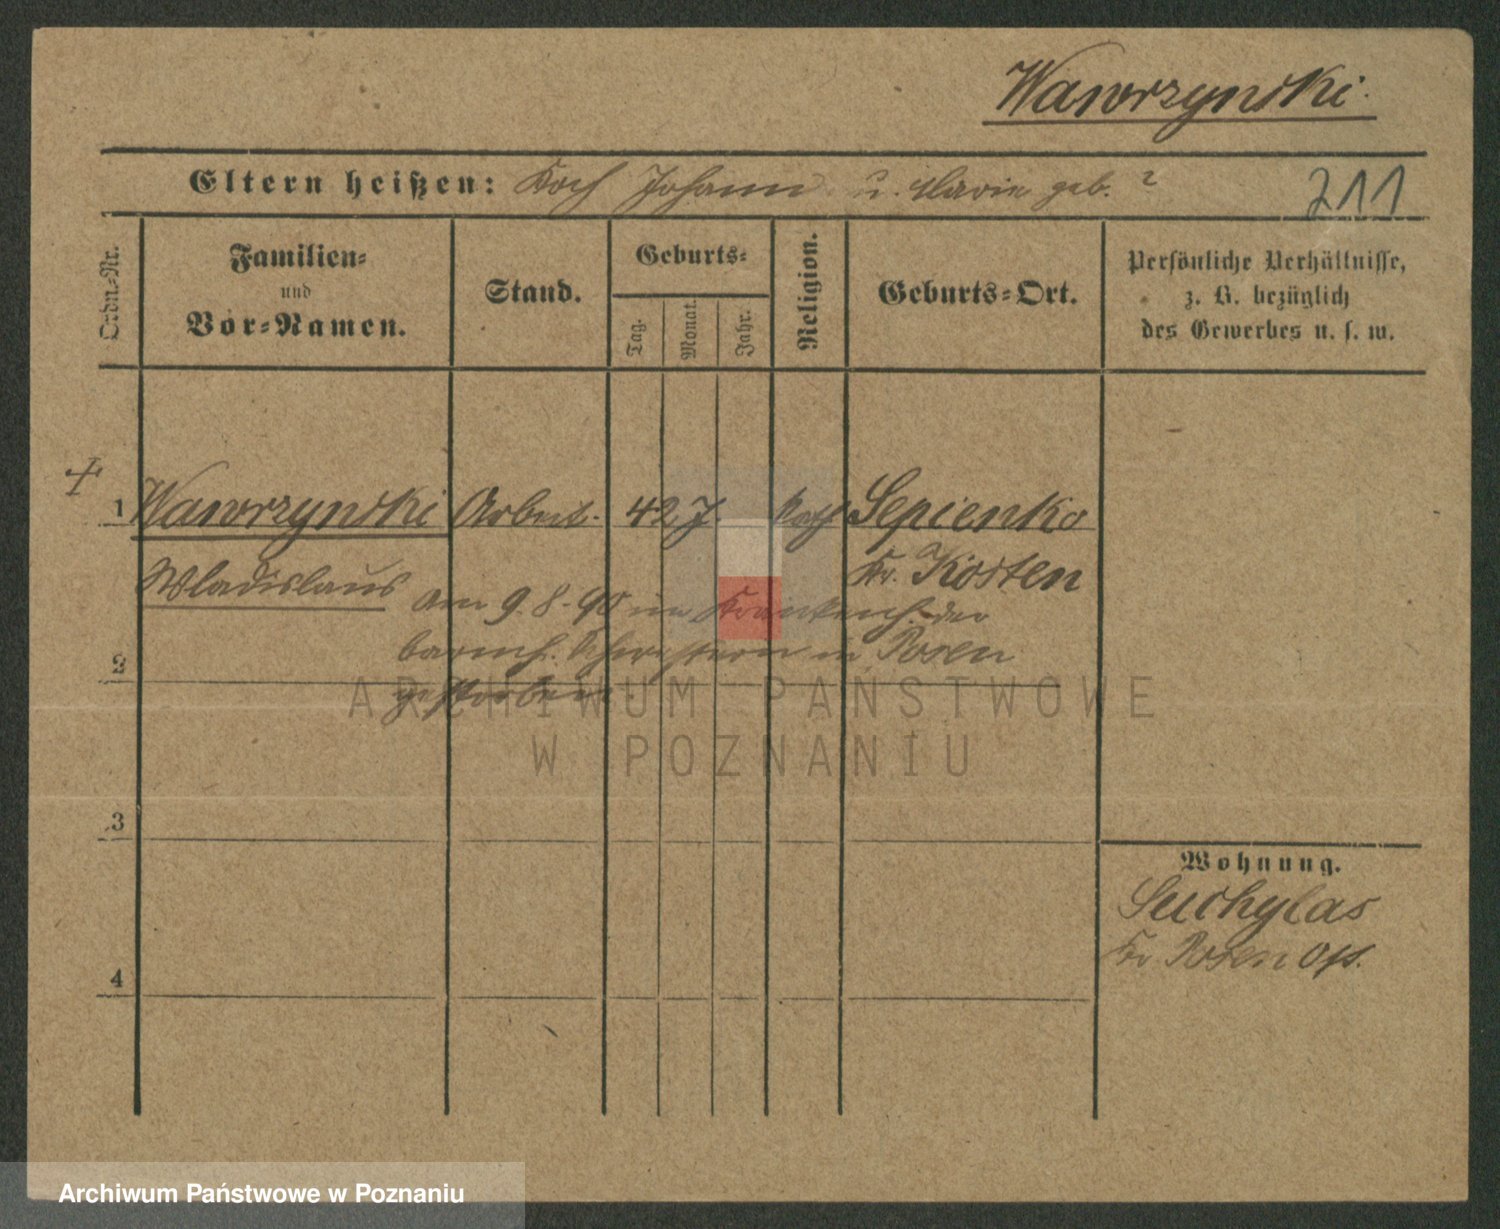 Wawrzynski.
Eltern heißen: Koch Johann u. Marie geb. ?
211
Ordn.-Nr.
Familien-
und
Vor-Namen.
Stand.
Geburts-
Tag.
Monat.
Jahr.
Religion.
Geburts-Ort.
Persönliche Verhältnisse,
z. B. bezüglich
des Gewerbes u. s. w.
+
1 Wawrzynski Arbeit. 42 J. kath Sepienko
Kr. Kosten
Wladislaus
am 9.8.90 im Krankenh. der
barmh. Schwestern in Posen
gestorben.
2
3
4
Wohnung.
Suchylas
Kr Posen Ost.
ARCHIWUM PAŃSTWOWE
W POZNANIU
Archiwum Państwowe w Poznaniu